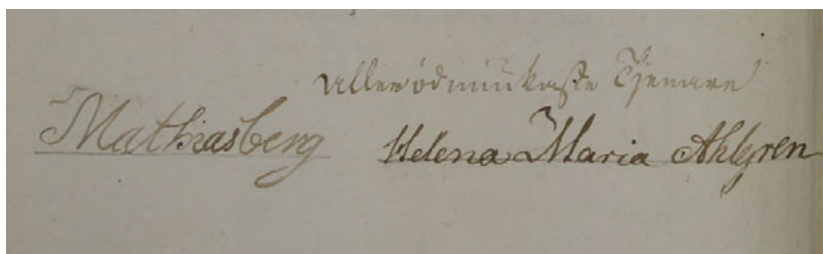 Allerödmiukaste Tjenare
Mathiasberg Helena Maria Ahlgren